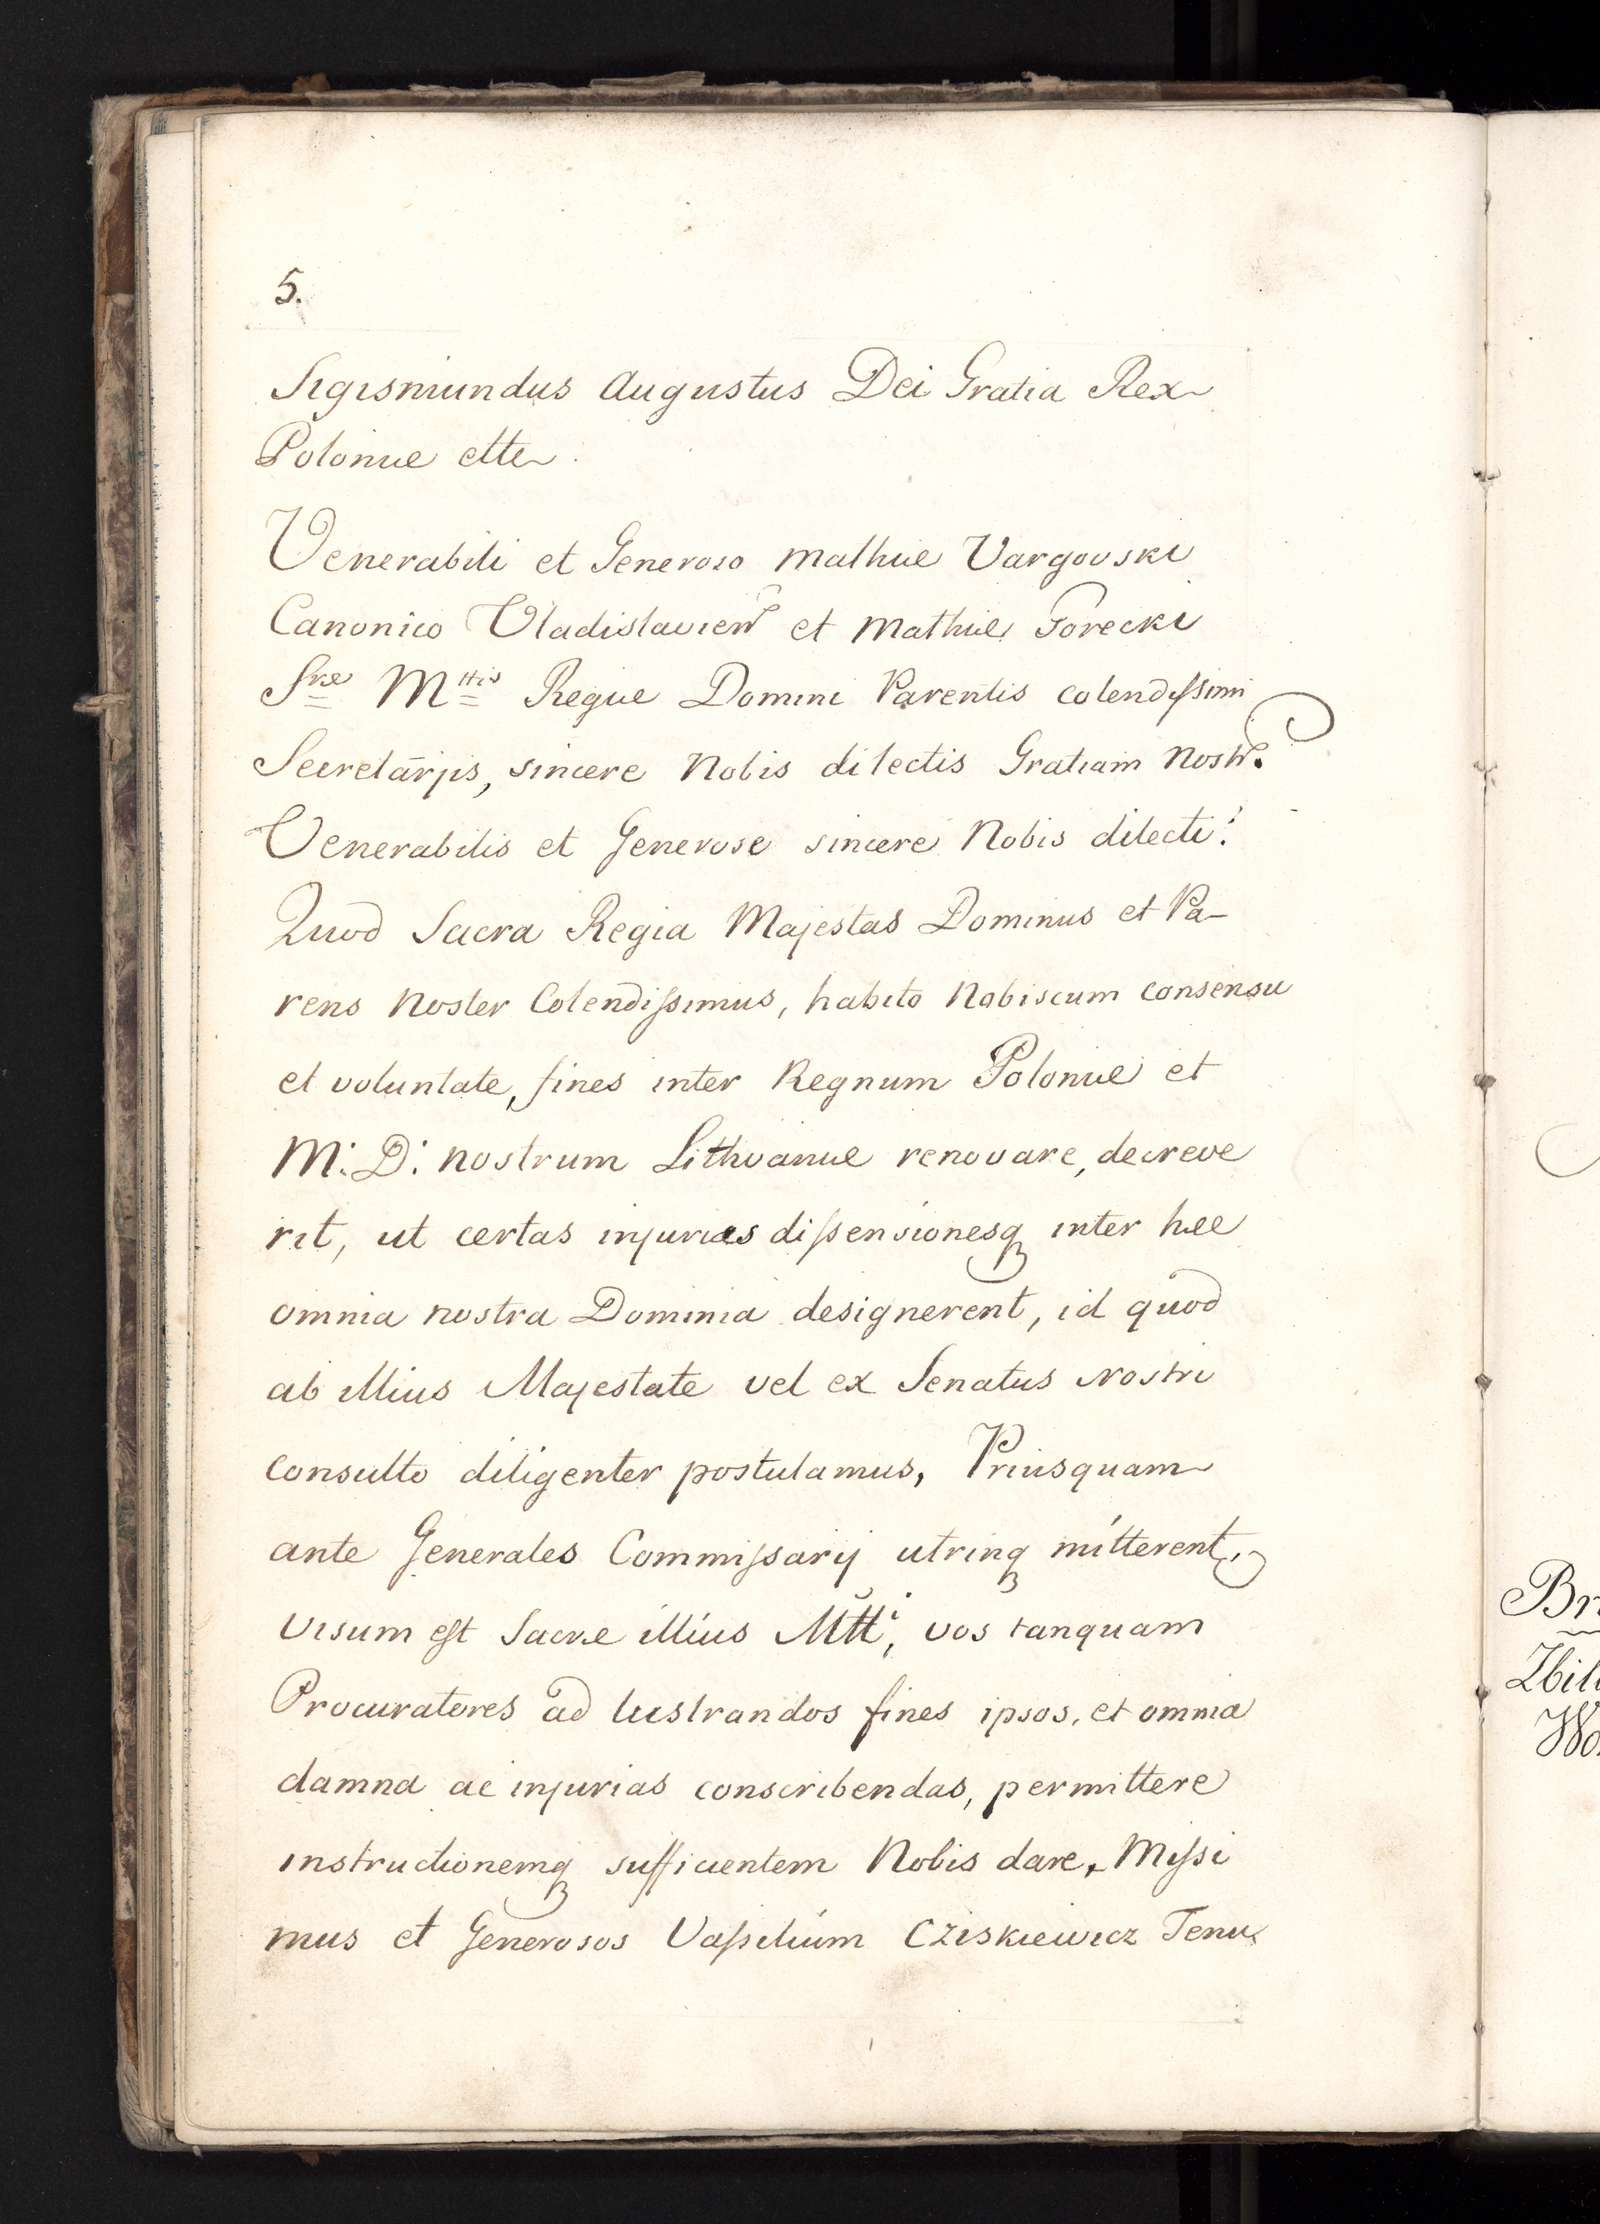 5.
Sigismundus Augustus Dei Gratia Rex
Poloniæ ettc
Venerabili et Generoso Mathiæ Vargovski
Canonico Vladislavien et Mathiæ Gorecki
Sræ Mttis Regiæ Domini Parentis colendissimi
Secretarjis, sincere Nobis dilectis Gratiam Nostr.
Venerabilis et Generose sincere Nobis dilecti!
Quod Sacra Regia Majestas Dominus et Pa-
rens Noster Colendissimus, habito Nobiscum consensu
et voluntate, fines inter Regnum Poloniæ et
M: D: nostrum Lithvaniæ renovare, decreve
rit, ut certas injurias dissensionesq inter hæc
omnia nostra Dominia designerent, id quod
ab illius Majestate vel ex Senatus Nostri
consulto diligenter postulamus, Priusquam
ante Generales Commissarij utrinq mitterent,
visum est Sacræ illius Mtti, vos tanquam
Procuratores ad lustrandos fines ipsos, et omnia
damna ac injurias conscribendas, permittere
instructionemq sufficientem Nobis dare, Missi
mus et Generosos Vassilium Cziskiewicz Tenu
Br
Zbil
Wo